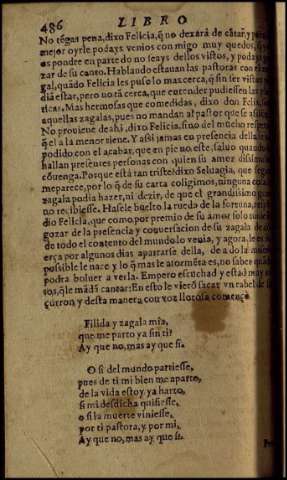 486 LIBRO
No tẽgas pena, dixo Felicia, q̃ no dexarà de cãtar, y para
mejor oyrle podays venios con migo muy quedos, q̃
os pondre en parte do no seays dellos vistos, y podays go
zar de su canto. Hablando estauan las pastoras con
gal, quãdo Felicia les puso lo mas cerca, q̃ sin ser vistas
diã estar, pero no tã cerca, que entender pudiessen las
ticas. Mas hermosas que comedidas, dixo don
aquellas zagalas, pues no mandan al pastor que se assiẽte
No prouiene de ahi, dixo Felicia, sino del mucho respeto
q̃ el a la menor tiene. Y assi jamas en presencia della
podido con el acabar, que en pie no este, saluo quando
hallan presentes personas con quien su amor dissimular
cõuenga. Porque està tan triste? dixo Seluagia, que segun
me parece, por lo q̃ de su carta coligimos, ninguna cosa
zagala podia hazer, ni dezir, de que el grandissimo gusto
no recibiesse. Hasele buelto la rueda de la fortuna, respon
dio Felicia, que como por premio de su amor solo
gozar de la presencia y conuersacion de su zagala de
de todo el contento del mundo lo venia, y agora, le es
erça por algunos dias apartarse della, de a do le
possible le nace y lo q̃ mas le atormẽta es, no sabe quãdo
podrà boluer a verla. Empero escuchad y estad muy
sos, q̃ le mãdã cantar: En esto le vierõ sacar vn rabel de
çurron, y desta manera con voz llorosa começò.
Filida y zagala mia,
que me parto ya sin ti?
Ay que no, mas ay que si.
O si del mundo partiesse,
pues de ti mi bien me aparto,
de la vida estoy ya harto,
si mi desdicha quisiesse,
o si la muerte viniesse,
por ti pastora, y por mi,
Ay que no, mas ay que si.